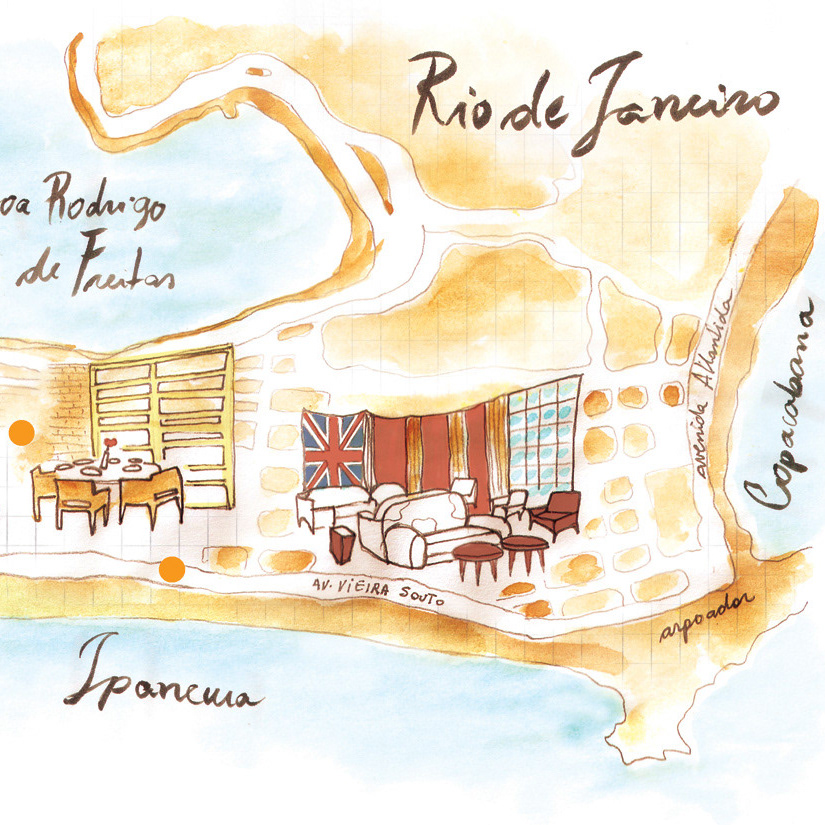 Rio de Janeiro
oa Rodrigo
de Freitas
avenida Atlantida
Copacabana
AV. VIEIRA SOUTO
arpoador
Ipanema